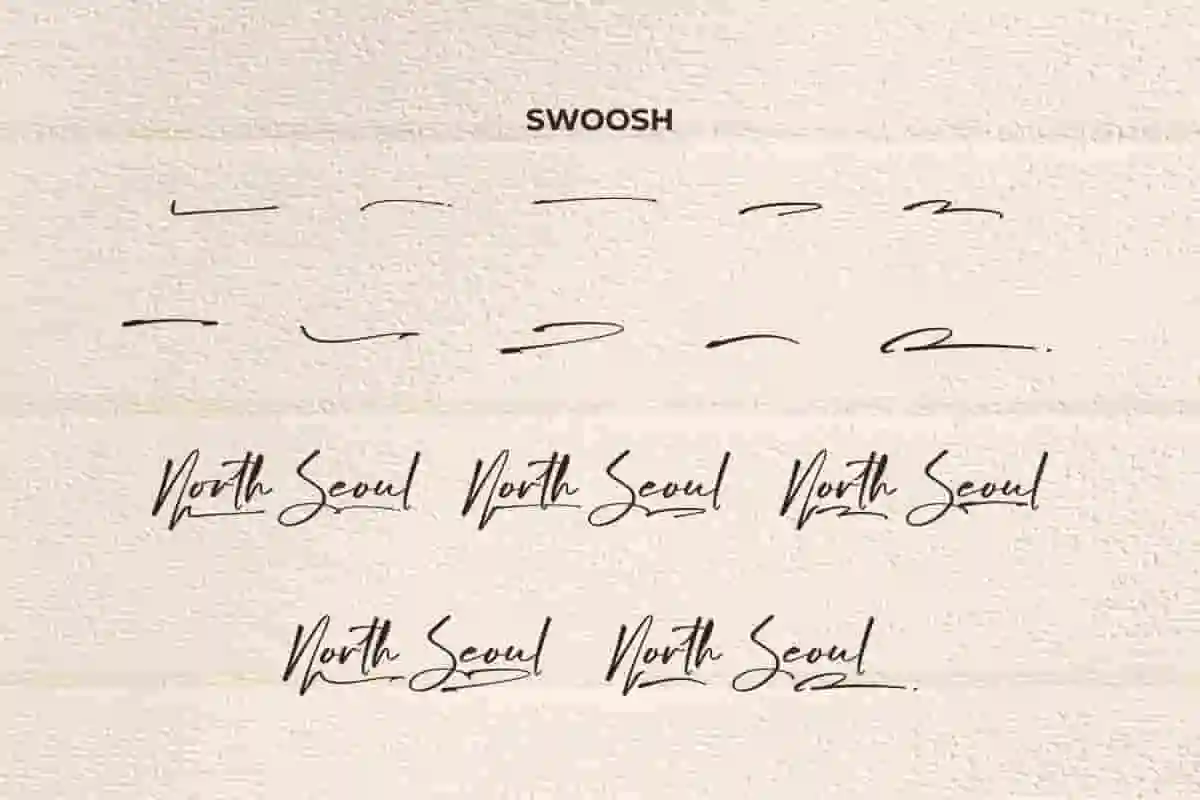 SWOOSH
North Seoul North Seoul North Seoul
North Seoul North Seoul